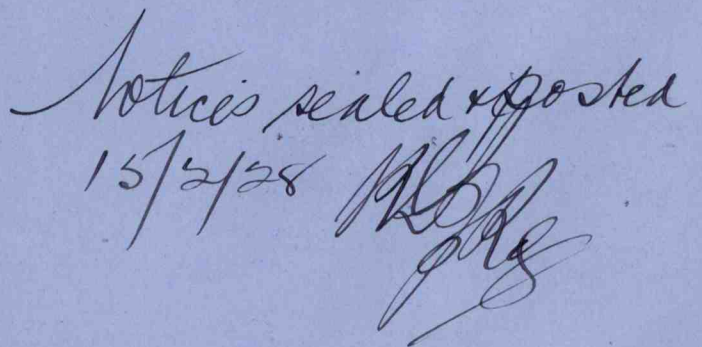 Notices sealed & posted
15/2/28